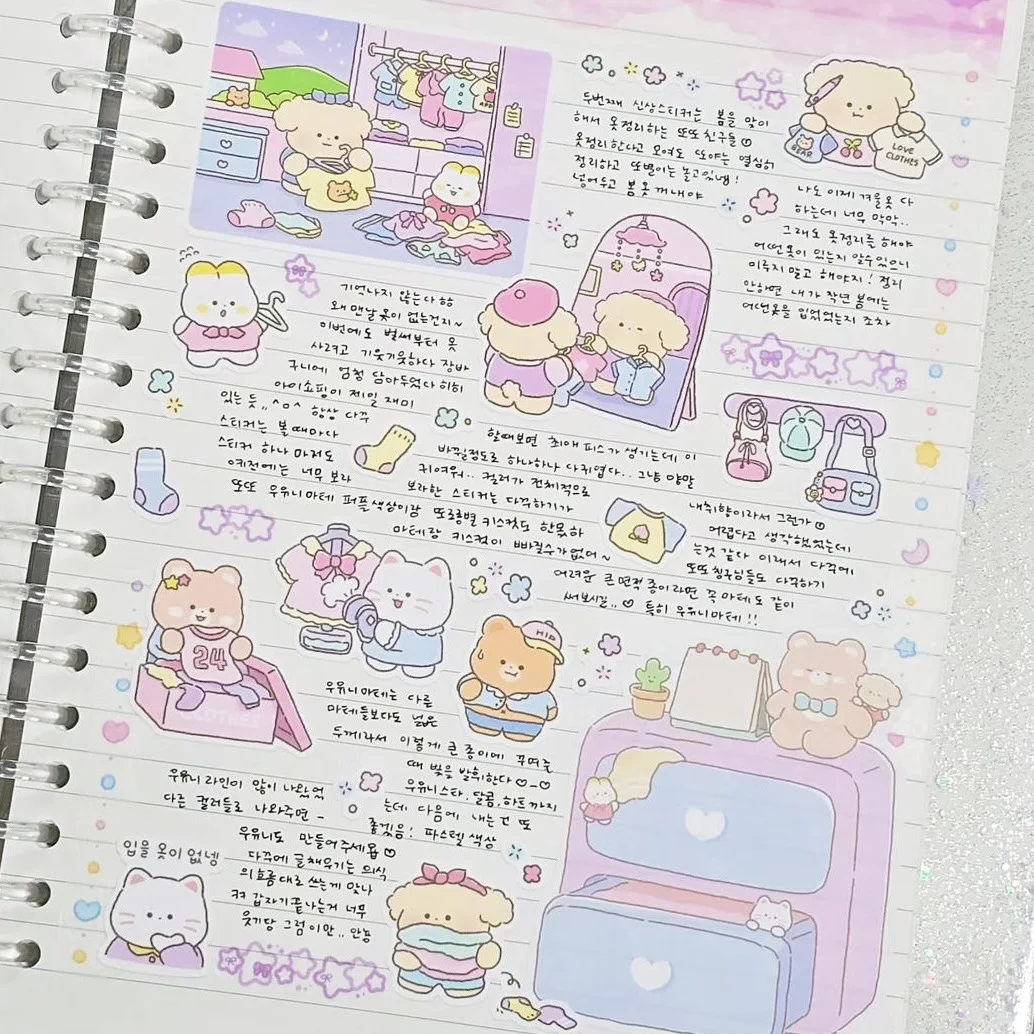 두번째 신상스티커는 봄을 맞이
해서 옷정리하는 또또친구들
옷정리한다고 모여도 또야는 열심히
정리하고 또별이는 놀고있넹!
넣어두고 봄옷 꺼내야
BEAR
LOVE
CLOTHES
나도 이제 겨울옷 다
하는데 너무 막막..
그래도 옷정리를 해야
어떤옷이 있는지 알수있으니
미루지 말고 해야지! 정리
안하면 내가 작년 봄에는
어떤옷을 입었었는지 조차
기억나지 않는다
왜 맨날 옷이 없는건지~
이번에도 벌써부터 옷
사려고 기웃기웃하다 장바
구니에 엄청 담아두었다 히히
아이쇼핑이 제일 재미
있는 듯.. ^o^ 항상 다꾸
스티커는 볼때마다
스티커 하나 마저도
예전에는 너무 보라
또또 우유니마테 퍼플색상이랑 또롱별 키스컷도 한몫하
마테랑 키스컷이 빠질수가없어~
할때보면 최애 피스가 생기는데 이
바뀔정도로 하나하나 다귀엽다.. 그냥 양말
귀여워.. 컬러가 전체적으로
보라한 스티커는 다꾸하기가
내취향이라서 그런가
어렵다고 생각했었는데
는것 같다 이래서 다꾸에
또또칭구님들도 다꾸하기
어려운 큰 면적 종이라면 꼭 마테도 같이
써보시길.. ♡ 특히 우유니마테!!
24
CLOTHES
HIP
우유니마테는 다른
마테들보다도 넓은
두께라서 이렇게 큰 종이에 꾸며줄
때 빛을 발휘한다 ♡-♡
우유니스타, 달콤, 하트까지
는데 다음에 내는건 또
좋겠음! 파스텔 색상
우유니 라인이 많이 나왔었
다른 컬러들로 나와주면 -
우유니도 만들어주세욥 ♡
다꾸에 글채우기는 의식
의흐름대로 쓰는게 맞나
ㅋㅋ 갑자기끝나는거 너무
웃기당 그럼이만.. 안뇽
입을 옷이 없넹